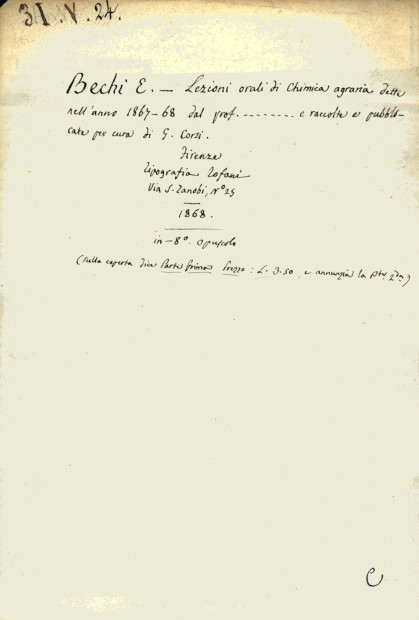 31.V.24.
Bechi E. — Lezioni orali di Chimica agraria dette
nell'anno 1867-68 dal prof. ......... e raccolte e pubbli-
cate per cura di G. Corsi.
Firenze
Tipografia Tofani
Via S. Zanobi, N.º 25
1868.
in-8º. opuscolo
(Sulla coperta dice Parte prima Prezzo: L. 3.50 e annunzia la pte 2da)
C